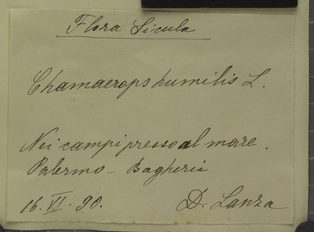 Flora Sicula
Chamaerops humilis L.
Nei campi presso al mare.
Palermo - Bagheria
16. VI. 90.
D. Lanza